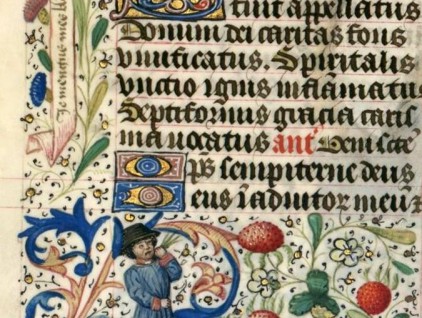 tuit appellatus
Domum dei caritas fons
vnificatus. Spiritalis
vnctio ignis inflamatu
Septiformis gracia caris
mavocatus ant Veni sctē
ps sempiterne deus
eus in adiutor meu
Je men